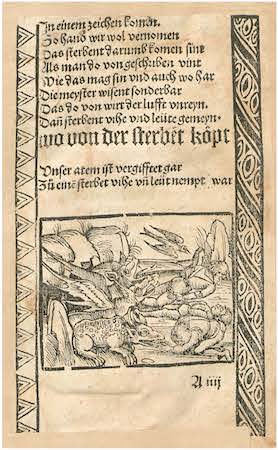 In einem zeichen komen.
So hand wir wol vernomen
Das sterbent darumb komen sint
Als man do von geschriben vint
Wie das mag sin vnd auch wo har
Die meyster wisent sonderbar
Das do von wirt der lufft vnreyn.
Dañ sterbent vihe vnd leüte gemeyn.
wo von der sterbēt kōpt
Vnser atem ist vergifftet gar
Zů einē sterbet vihe vñ leüt nempt war
A iiij